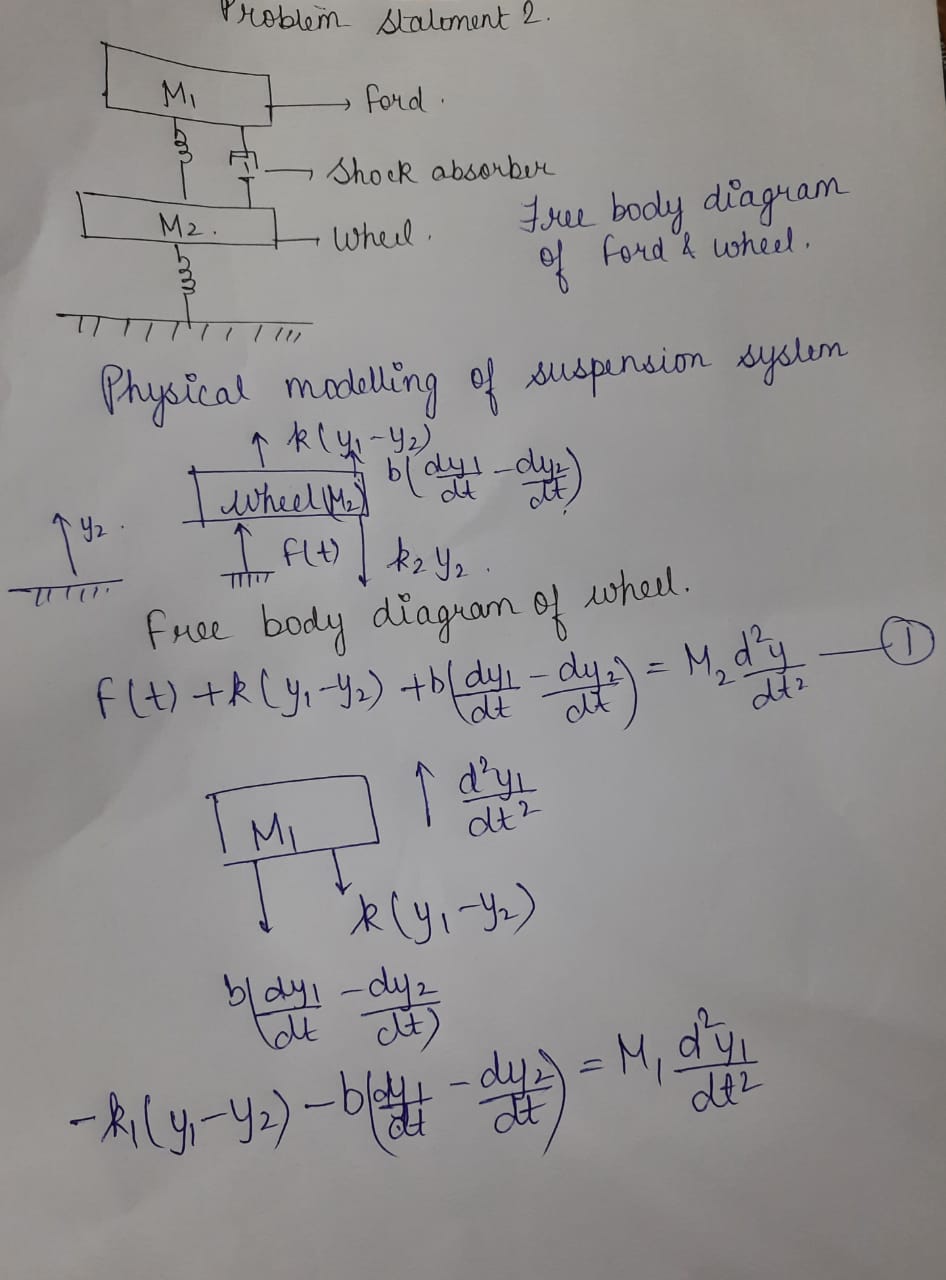 Problem statement 2.
M₁ → ford.
→ Shock absorber
M₂. → Wheel.
Free body diagram
of ford & wheel.
Physical modelling of suspension system
↑ k(y₁-y₂)
b(dy₁/dt - dy₂/dt)
Wheel(M₂)
↑ y₂.
f(t) k₂y₂.
free body diagram of wheel.
f(t) + k(y₁-y₂) + b(dy₁/dt - dy₂/dt) = M₂ d²y/dt² — ①
M₁ ↑ d²y₁/dt²
k(y₁-y₂)
b(dy₁/dt - dy₂/dt)
-k₁(y₁-y₂) - b(dy₁/dt - dy₂/dt) = M₁ d²y₁/dt²